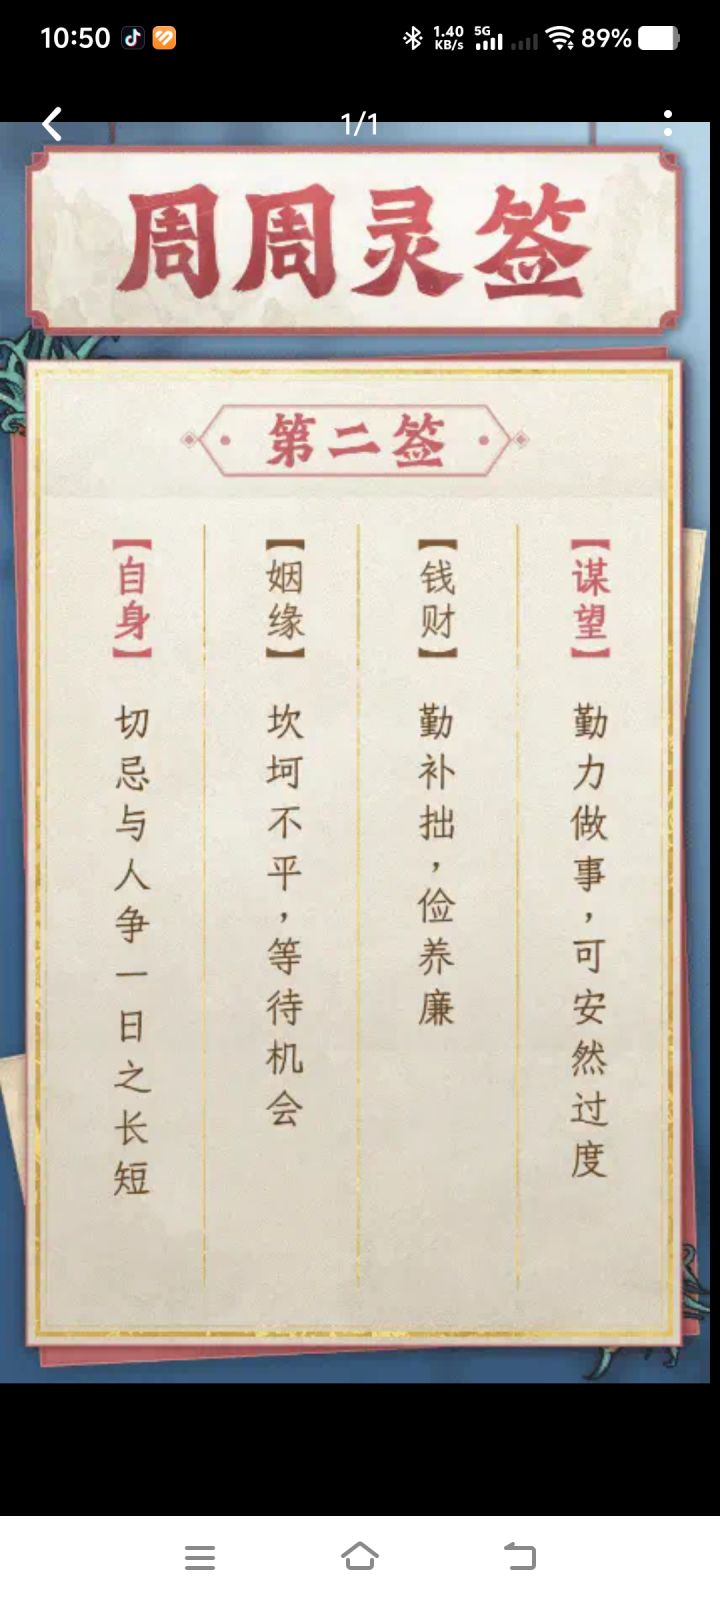 10:50
1.40 KB/s
5G
89%
1/1
周周灵签
第二签
【谋望】 勤力做事，可安然过度
【钱财】 勤补拙，俭养廉
【姻缘】 坎坷不平，等待机会
【自身】 切忌与人争一日之长短